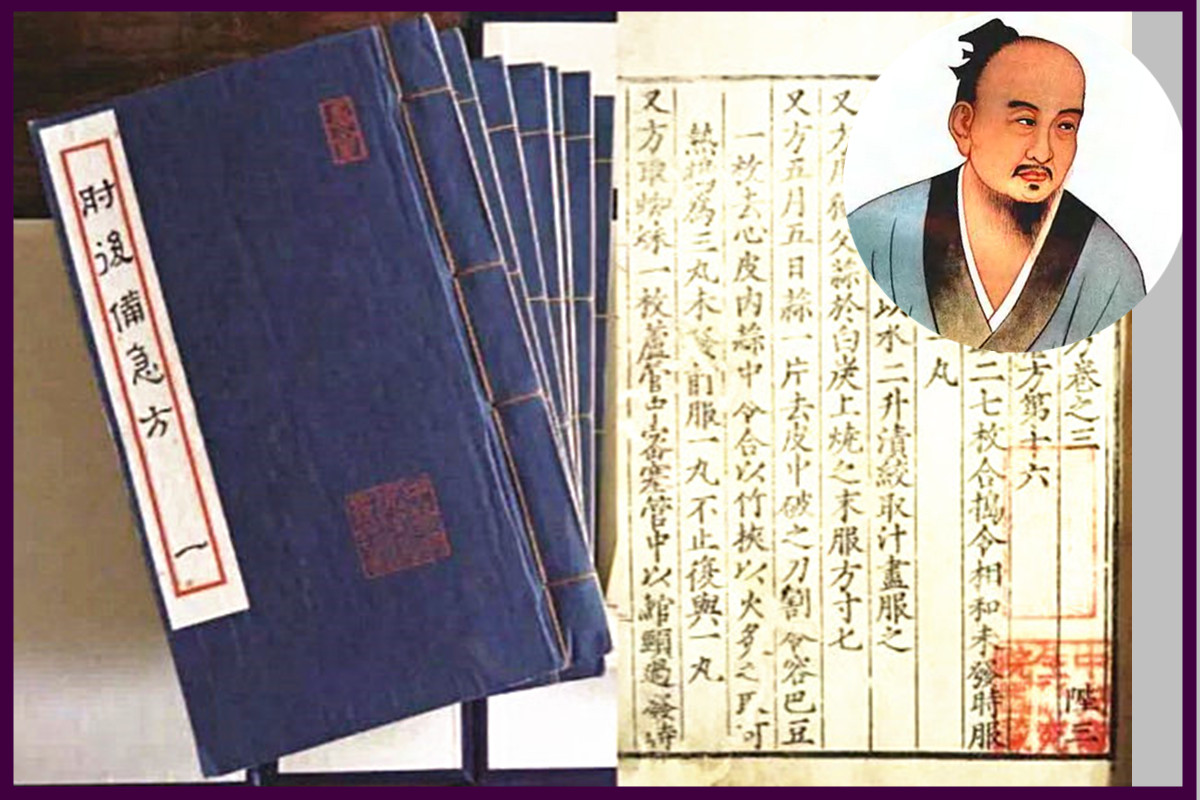 肘後備急方 一
方卷之三 陛三
方第十六
二七枚合搗令相和未發時服
一丸
以水二升漬絞取汁盡服之
又方用獨父蒜於白炭上燒之末服方寸七
又方五月五日蒜一片去皮中破之刀割令容巴豆
一枚去心皮內蒜中令合以竹挾以火炙之取可
熱搗為三丸未發前服一丸不止復與一丸
又方取蜘蛛一枚蘆管中密塞管中以綰頸過發時